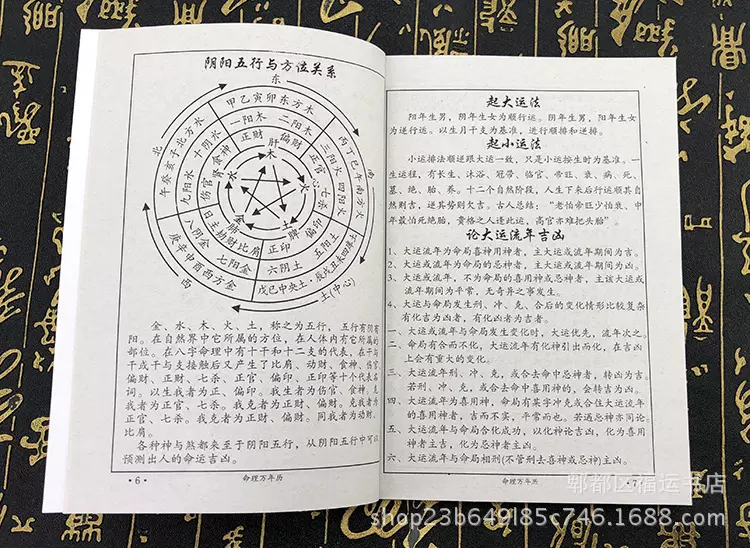 阴阳五行与方位关系
东
甲乙寅卯东方木
一阳木
二阳木
正财
偏财
肝
木
丙丁巳午南方火
三阳火
四阳火
正官
七杀
心
火
正印
偏印
脾
土
五阳土
六阴土
戊己中央土
(中心)土
庚辛申酉西方金
七阳金
八阴金
日主劫财比肩
肺
金
西
北
午癸亥子北方水
九阳水
十阴水
伤官
食神
肾
水
金、水、木、火、土,称之为五行,五行有阴有
阳。在自然界中它所属的方位,在人体内有它所属的
部位。在八字命理中有十干和十二支的代表,在干与
干或干与支接触后又产生了比肩、动财、食神、伤官
偏财、正财、七杀、正官、偏印、正印等十个代表名
词。以生我者为正、偏印。我生者为伤官、食神,克
我者为正官、七杀。我克者为正财、偏财。克我者为
正官、七杀。我克者为正财、偏财。同我者为动财、
比肩。
各种神与煞都来至于阴阳五行,从阴阳五行中可以
预测出人的命运吉凶。
·6·
命理万年历
起大运法
阳年生男,阴年生女为顺行运。阴年生男,阳年生女
为逆行运。以生月干支为基准,进行顺排和逆排。
起小运法
小运排法顺逆跟大运一致,只是小运按生时为基准。一
生运程,有长生、沐浴、冠带、临官、帝旺、衰、病、死、
墓、绝、胎、养。十二个自然阶段,人生下来后行运顺其自
然则吉,逆其势则欠吉。古人总结:“老怕帝旺少怕衰,中
年最怕死绝胎,贵格之人逢此运,高官亦难把头抬”。
论大运流年吉凶
1、大运流年为命局喜神用神者,主大运或流年期间为吉。
2、大运或流年为命局忌神者,主大运或流年期间为凶。
3、大运或流年,不为命局的喜神或忌神者,主该大运或
流年期间为平常,无奇异之事发生。
4、大运与命局发生刑、冲、克、合后的变化情形比较复杂
有化吉为凶者,有化凶者为吉者。
一、大运或流年与命局发生变化时,大运优先,流年次之。
二、命局有合而不化,大运流年有化神引出而化,在吉凶
上会有重大的变化。
三、大运流年刑、冲、克,或合去命中忌神者,转凶为吉。
若刑、冲、克,或合去命中喜用神的,会转吉为凶。
四、大运流年为喜用神,命局有某字冲克或合住大运流年
的喜用神者,吉而不实,平常而也。若遇忌神亦同论
五、大运流年与命局合化成功,以化神论吉凶,化为喜用
神者主吉,化为忌神者主凶。
六、大运流年与命局相刑(不管刑去喜神或忌神)主凶。
命理万年历
·7·
郫都区福运书店
shop23b649l85c746.1688.com